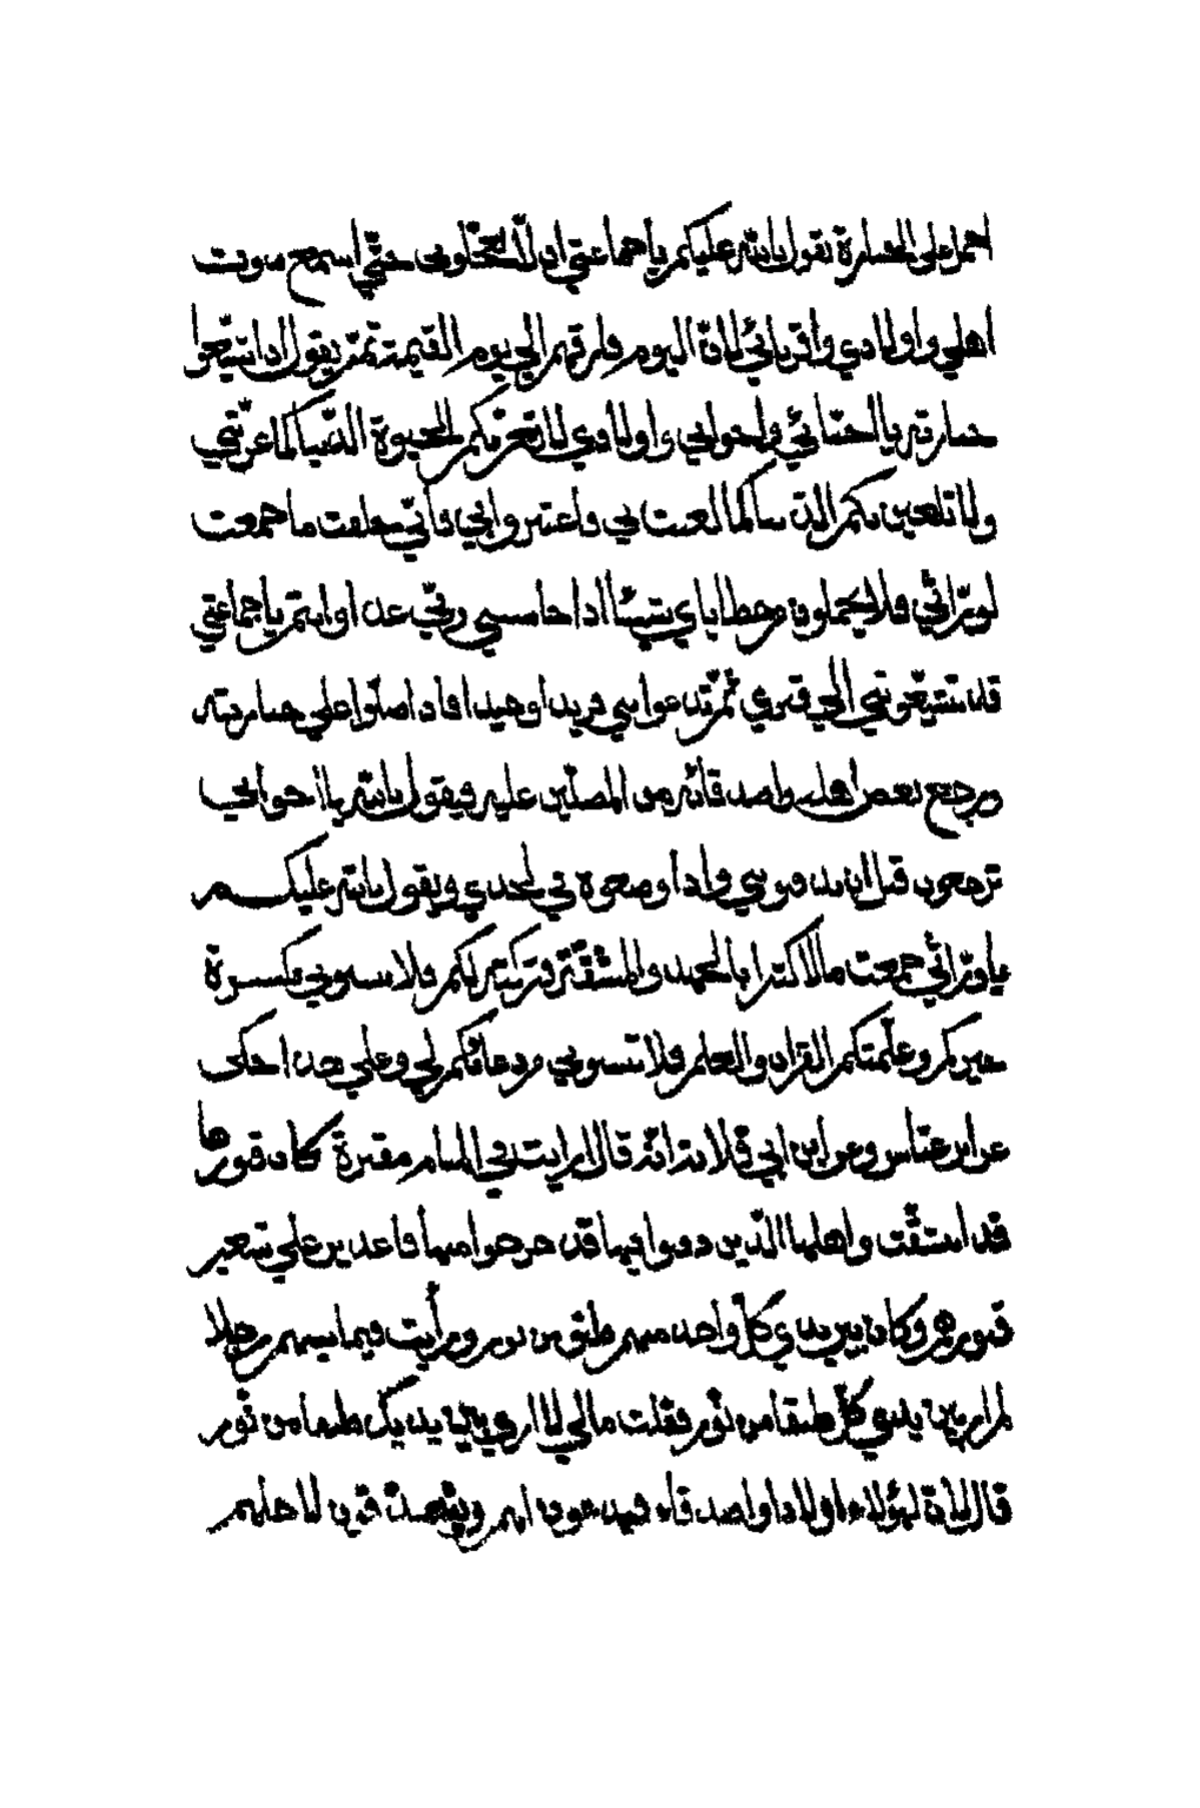 احمل على الجنازة يقول بالله عليكم يا جماعتي ان لا تعجّلوني حتّي اسمع صوت
اهلي واولادي واقربائي لان اليوم فارقهم الي يوم القيمة ثمّ يقول اذا شيّعوا
جنازته يا احبّائي واخواني واولادي لا تغرّنّكم الحيوة الدّنيا كما غرّتني
ولا تلعبن بكم الدنيا كما لعبت بي واعتبروا بي فانّي خلفت ما جمعت
لورّاثي فلا يحملون من خطاياي شيئا اذا حاسبني ربّي غدا وانتم يا جماعتي
قد تشيّعونني الي قبري ثمّ تدعوانني فريدا وحيدا فاذا صلّوا علي جنازته
ورجع بعض اهله واصدقائه من المصلّين عليه فيقول بالله يا اخواني
ترجعون قبل ان يدفنوني واذا وضعوه في لحدي ويقول بالله عليكم
يا ورّاثي جمعت مالا كثيرا بالجهد والمشقّة فتركته لكم فلا تنسوني بكسرة
خبزكم وعلّمتكم القران والعلم فلا تنسوني من دعائكم لي وعلي هذا حكي
عن ابن عبّاس وعن ابن ابي قلابة انّه قال رايت في المنام مقبرة كان قبورها
قد انشقّت واهلها الّذين دفنوا فيها قد خرجوا منها قاعدين علي شفير
قبورهم وكان بين يدي كلّ واحد منهم طبق من نور ورأيت فيما بينهم رجلا
لم ار بين يديه كلّ طبقا من نور فقلت مالي لا اري بين يديك طبقا من نور
قال لان لهؤلاء اولادا واصدقاء فيدعون لهم ويتصدّقون لاجلهم